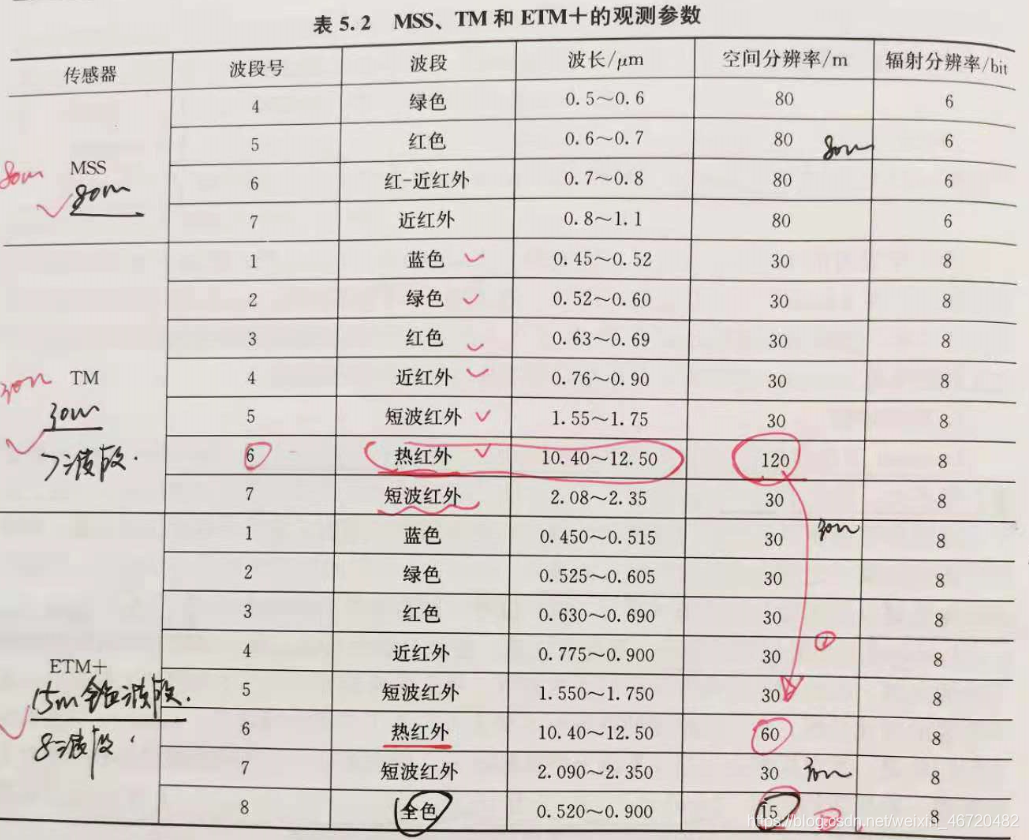 表 5.2 MSS、TM 和 ETM+的观测参数
传感器 波段号 波段 波长/μm 空间分辨率/m 辐射分辨率/bit
4 绿色 0.5~0.6 80 6
5 红色 0.6~0.7 80 80m 6
80m MSS 6 红-近红外 0.7~0.8 80 6
80m
7 近红外 0.8~1.1 80 6
1 蓝色 0.45~0.52 30 8
2 绿色 0.52~0.60 30 8
3 红色 0.63~0.69 30 8
30m TM 4 近红外 0.76~0.90 30 8
30m 5 短波红外 1.55~1.75 30 8
7波段. 6 热红外 10.40~12.50 120 8
7 短波红外 2.08~2.35 30 8
1 蓝色 0.450~0.515 30 30m 8
2 绿色 0.525~0.605 30 8
3 红色 0.630~0.690 30 8
4 近红外 0.775~0.900 30 ① 8
ETM+
15m全色波段. 5 短波红外 1.550~1.750 30 8
8波段. 6 热红外 10.40~12.50 60 8
7 短波红外 2.090~2.350 30 30m 8
8 全色 0.520~0.900 15 ② 8
https://blog.csdn.net/weixin_46720482